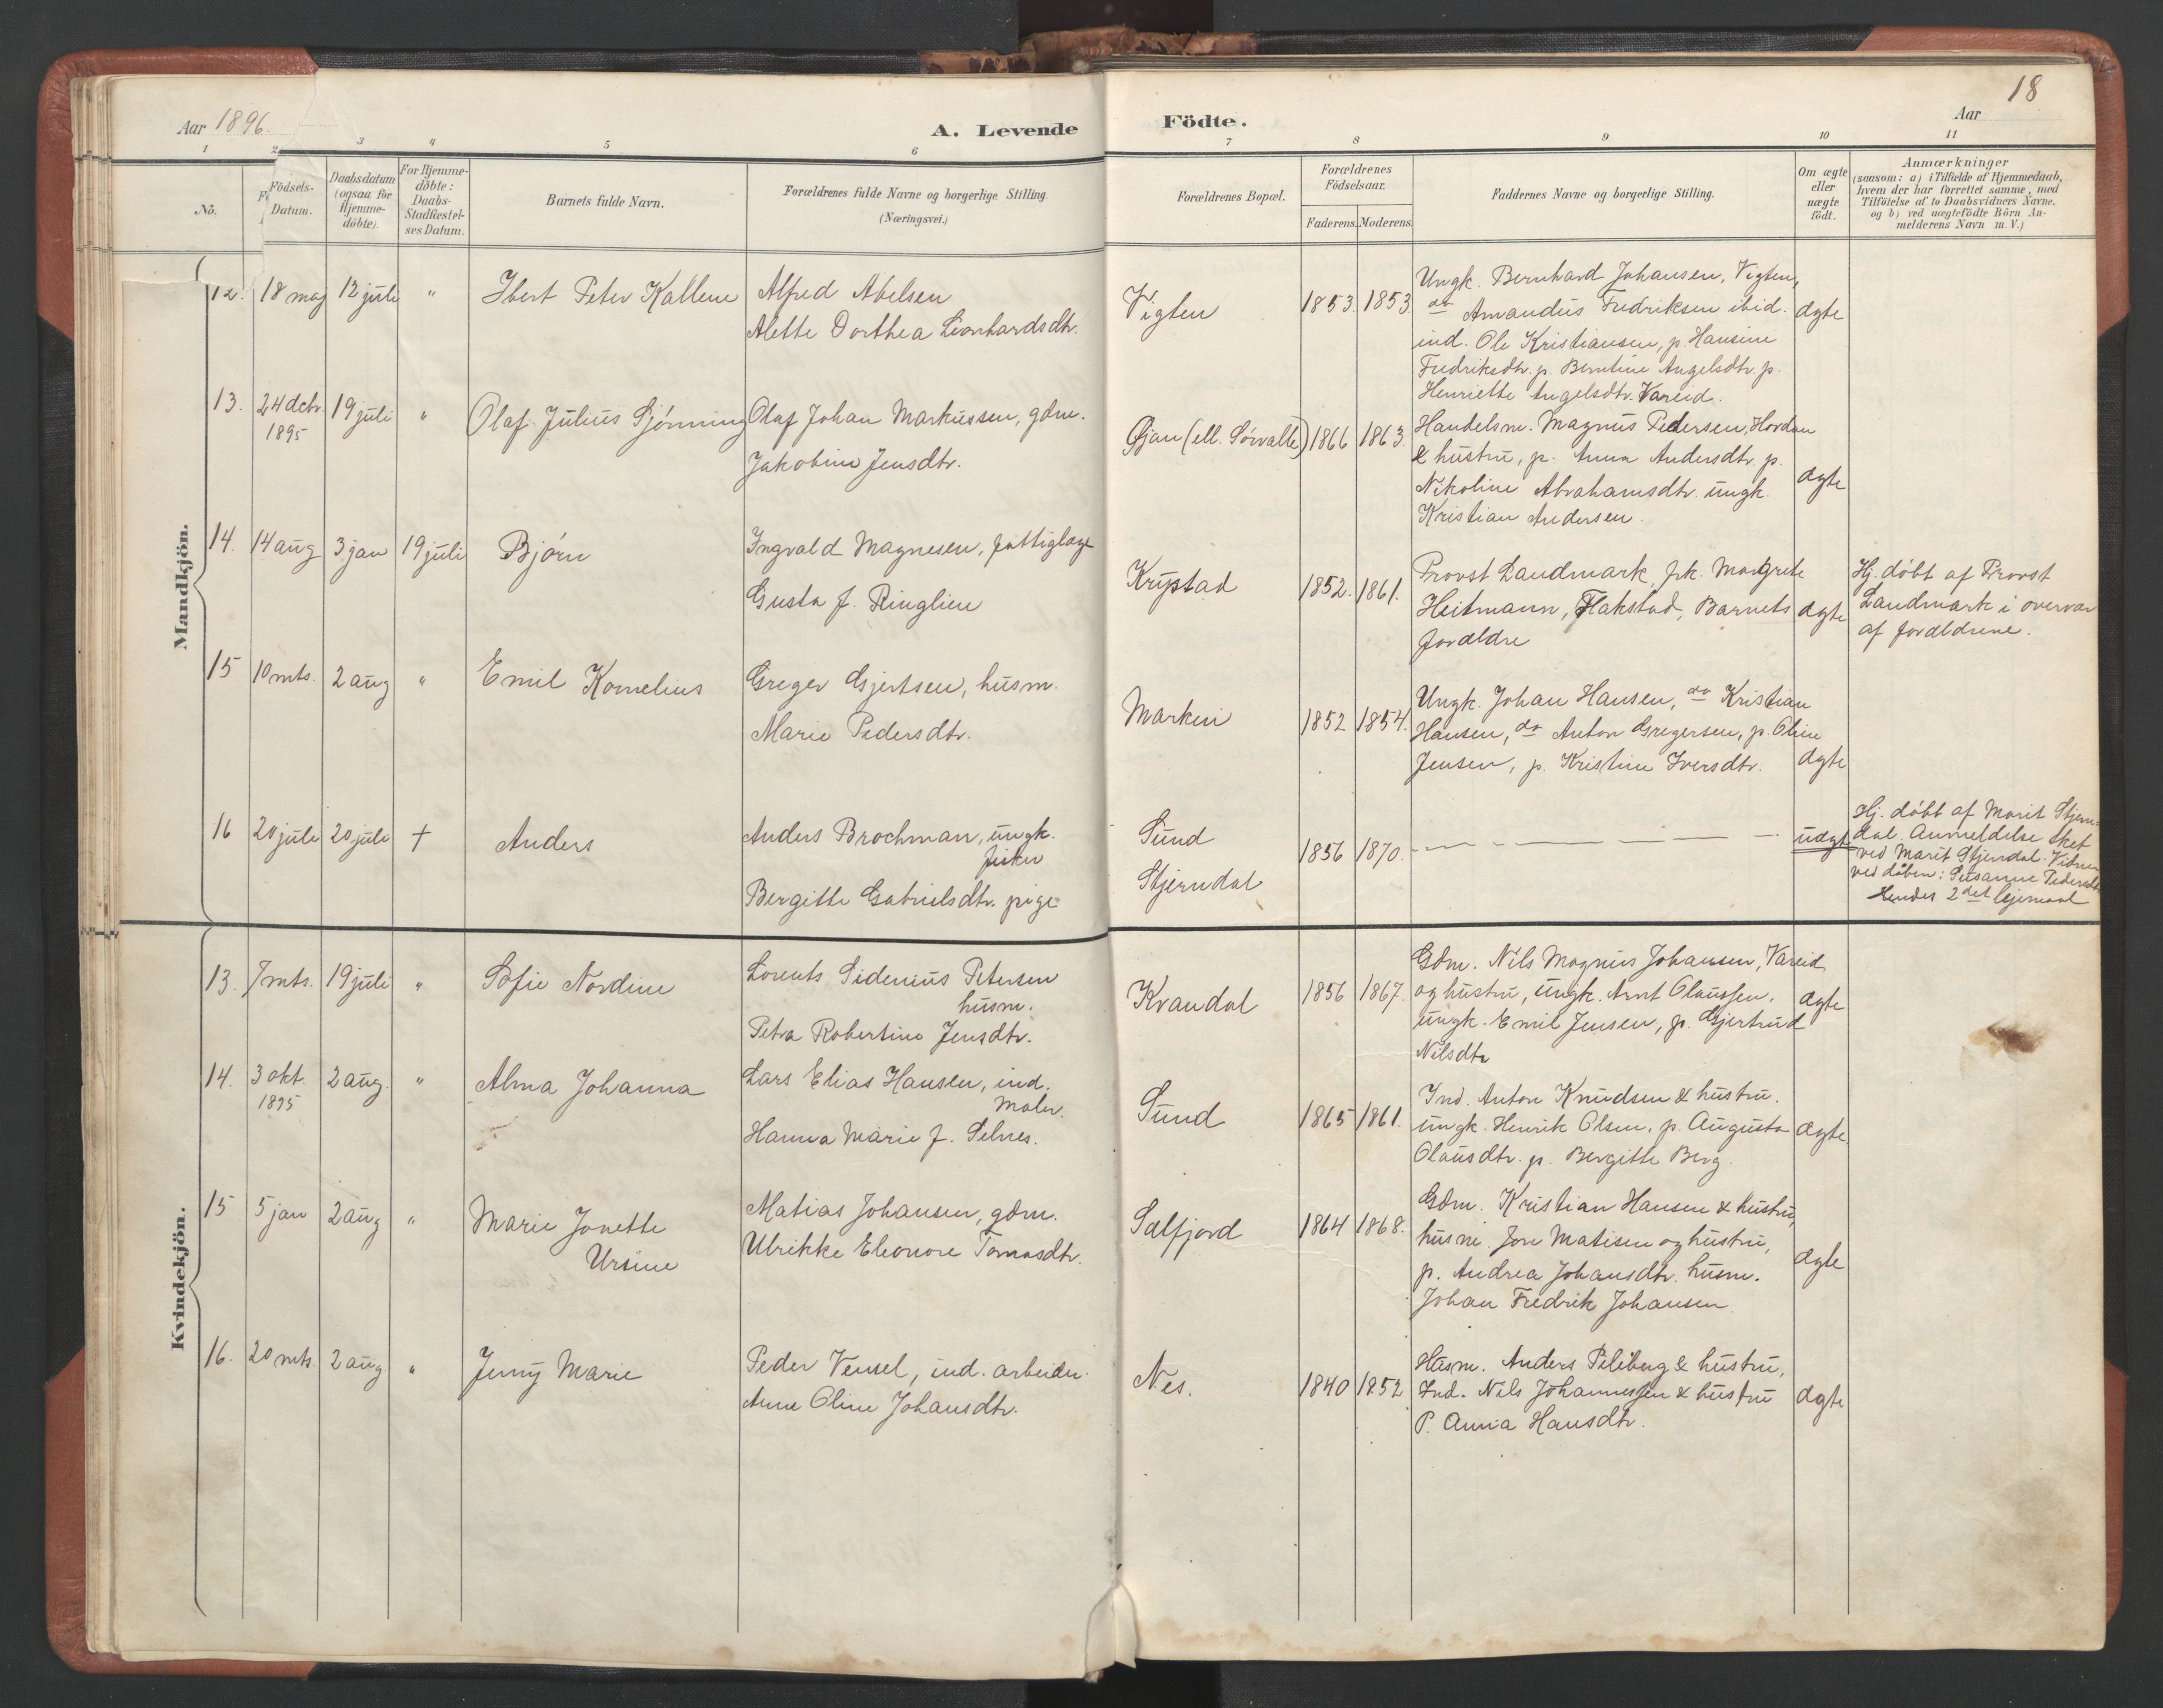 Aar 1896.
A. Levende Födte.
Aar
18
1 2 3 4 5 6 7 8 9 10 11
No.
Födsels-
Datum.
Daabsdatum
(ogsaa for
Hjemme-
döbte).
For Hjemme-
döbte:
Daabs-
Stadfæstel-
ses Datum.
Barnets fulde Navn.
Forældrenes fulde Navne og borgerlige Stilling.
(Næringsvei.)
Forældrenes Bopæl.
Forældrenes
Födselsaar.
Faderens. Moderens.
Faddernes Navne og borgerlige Stilling.
Om ægte
eller
uægte
födt.
Anmærkninger
(saasom: a) i Tilfælde af Hjemmedaab,
hvem der har forrettet samme, med
Tilföielse af to Daabsvidners Navne.
og b) ved uægtefödte Börn An-
melderens Navn m. V.)
Mandkjön.
12. 18 maj 12 juli " Ibert Peter Kallene
Alfred Abelsen
Alette Dorthea Leonhardsdtr.
Vigten 1853. 1853.
Ungk. Bernhard Johansen, Vigten,
do Amandus Fredriksen ibid.
ind. Ole Kristiansen, p. Hansine
Fredriksdtr. p. Berntine Angelsdtr. p.
Henriette Angelsdtr. Vareid.
ægte
13. 24 decbr 1895 19 juli " Olaf Julius Sjönning
Olaf Johan Markussen, gdm.
Jakobine Jensdtr.
Øjan (ell. Sörvalle) 1866 1863.
Handelsm. Magnus Pedersen,
& hustru, p. Anna Andersdtr. p.
Nikoline Abrahamsdtr. ungk.
Kristian Andersen.
ægte
14. 14 aug 3 jan 19 juli Björn
Ingvald Magnesen, fattiglæge
Gusta f. Ringlien
Krystad 1852. 1861.
Provst Landmark, frk. Margrete
Heitmann, Flakstad, Barnets
forældre
ægte
Hj. döbt af Provst
Landmark i overvær
af forældrene.
15 10 mts. 2 aug " Emil Kornelius
Greger Gjertsen, husm.
Marie Pedersdtr.
Marken 1852 1854.
Ungk. Johan Hansen, do Kristian
Hansen, do Anton Gregersen, p. Oline
Jensen, p. Kristine Iversdtr.
ægte
16 20 juli 20 juli † Anders
Anders Brochman, ungk.
fisker
Bergitte Gabrielsdtr. pige
Sund
Stjerndal
1856 1870.
uægte
Hj. döbt af Marit Stjern-
dal. Anmeldelse sket
ved Marit Stjerndal. Vidner
ved dåben: Susanne Pedersdtr
Hendes 2det lejermaal
Kvindekjön.
13. 7 mts. 19 juli " Sofie Nordine
Lorents Sidenius Petersen
husm.
Petra Robertine Jensdtr.
Kvandal 1856 1867.
Gdm. Nils Magnus Johansen, Vareid
og hustru, ungk. Arnt Olaussen.
ungk. Emil Jensen, p. Gjertrud
Nilsdtr
ægte
14. 3 okt. 1895 2 aug. " Alma Johanna
Lars Elias Hansen, ind.
maler.
Hanna Marie f. Selnes.
Sund 1865 1861.
Ind. Anton Knudsen & hustru.
ungk. Henrik Olsen, p. Augusta
Olausdtr. p. Bergitte Berg
ægte.
15 5 jan 2 aug " Marie Jonette
Ursine
Matias Johansen, gdm.
Ulrikke Eleonore Tomasdtr.
Selfjord 1864 1868.
Gdm. Kristian Hansen & hustru,
husm. Jon Matisen og hustru,
p. Andrea Johansdtr. husm.
Johan Fredrik Johansen
ægte
16. 20 mts. 2 aug " Jenny Marie
Peder Vensel, ind. arbeider.
Anne Oline Johansdtr.
Nes. 1840 1852
Husm. Anders Pileberg & hustru,
Ind. Nils Johannessen & hustru
P. Anna Hansdtr.
ægte